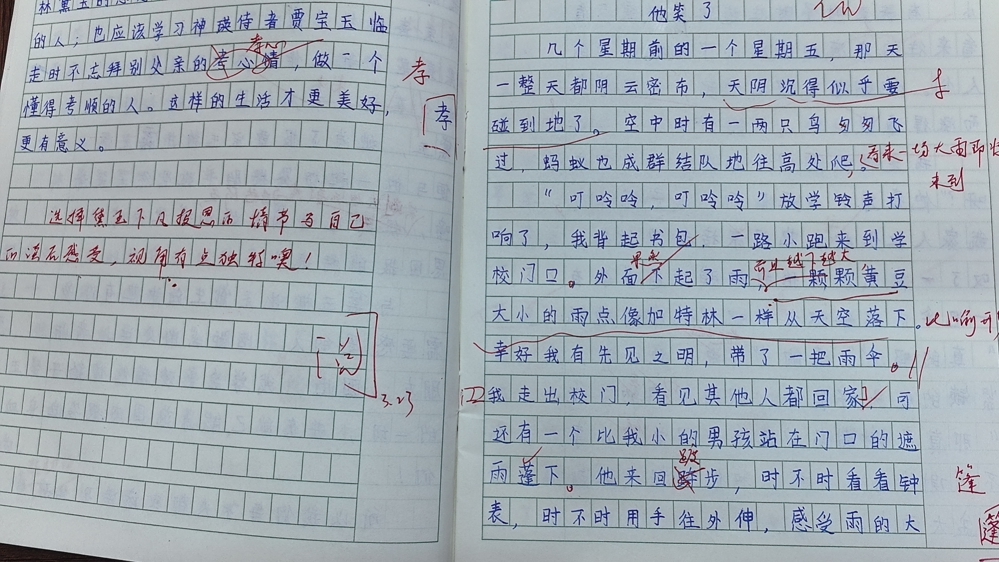 的人;也应该学习神瑛侍者贾宝玉临
走时不忘拜别父亲的考心情,做一个
孝心
孝
懂得考顺的人。这样的生活才更美好,
孝
更有意义。
选择黛玉下凡报恩的情节与自己
的读后感受,视角有点独特噢!
3.23
他笑了
几个星期前的一个星期五,那天
一整天都阴云密布,天阴沉得似乎要
碰到地了。空中时有一两只鸟匆匆飞
过,蚂蚁也成群结队地往高处爬,
看来一场大雨即将
来到
“叮呤呤,叮呤呤”放学铃声打
响了,我背起书包,一路小跑来到学
校门口。外面下起了雨,一颗颗黄豆
果然
而且越下越大
大小的雨点像加特林一样从天空落下。
幸好我有先见之明,带了一把雨伞。
我走出校门,看见其他人都回家,可
还有一个比我小的男孩站在门口的遮
雨蓬下。他来回步,时不时看看钟
踱
篷
表,时不时用手往外伸,感受雨的大
篷